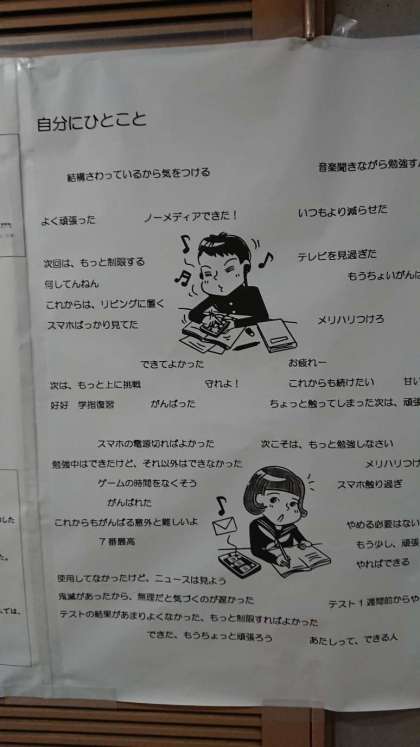 自分にひとこと
結構さわっているから気をつける
音楽聞きながら勉強す
よく頑張った
ノーメディアできた！
いつもより減らせた
次回は、もっと制限する
テレビを見過ぎた
何してんねん
もうちょいがんば
これからは、リビングに置く
スマホばっかり見てた
メリハリつけろ
できてよかった
お疲れー
次は、もっと上に挑戦
守れよ！
これからも続けたい
甘い
好好　学指復習
がんばった
ちょっと触ってしまった次は、頑張
スマホの電源切ればよかった
次こそは、もっと勉強しなさい
勉強中はできたけど、それ以外はできなかった
メリハリつけ
ゲームの時間をなくそう
スマホ触り過ぎ
がんばれた
これからもがんばる意外と難しいよ
やめる必要はない
７番最高
もう少し、頑張
やればできる
使用してなかったけど、ニュースは見よう
鬼滅があったから、無理だと気づくのが遅かった
テスト１週間前からや
テストの結果があまりよくなかった、もっと制限すればよかった
できた、もうちょっと頑張ろう
あたしって、できる人